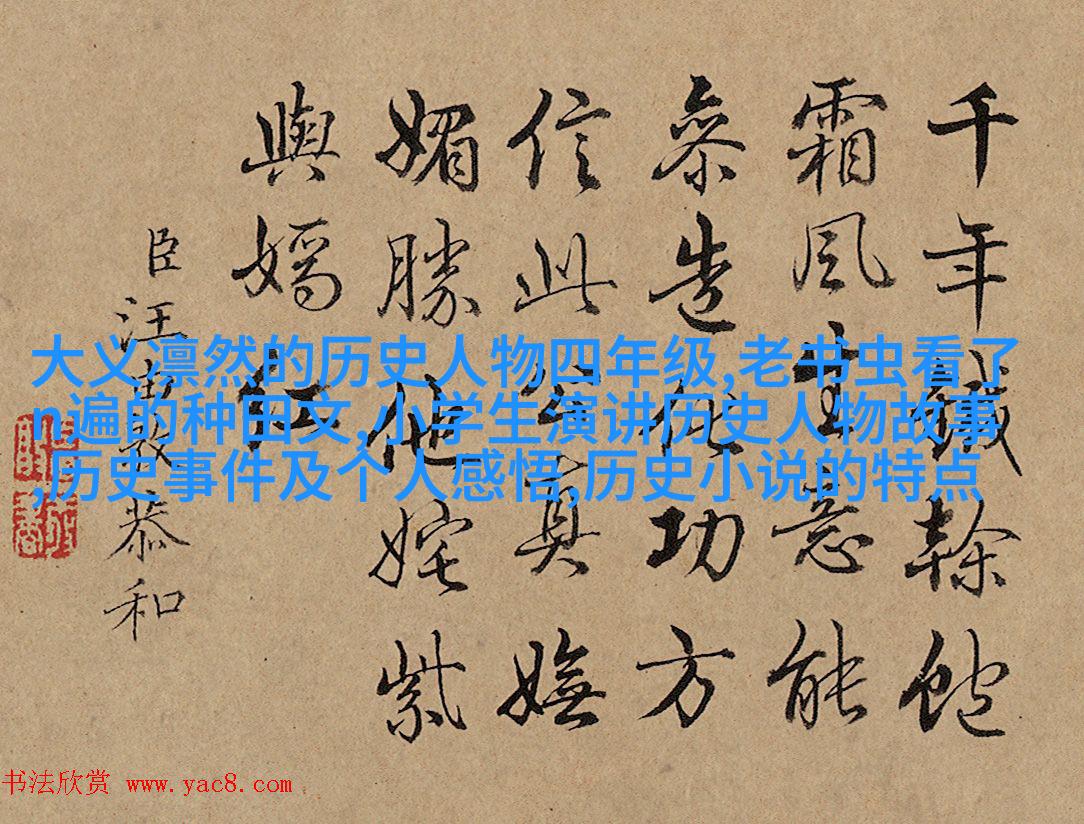 千年鐵幹飽
霜風主意能
參造化功方
信此公真嫵
媚勝他姹紫
與嫣紅
臣汪由敦恭和
大义凛然的历史人物四年级,老书虫看了
n遍的种田文,小学生演讲历史人物故事
,历史事件及个人感悟,历史小说的特点
书法欣赏 www.yac8.com